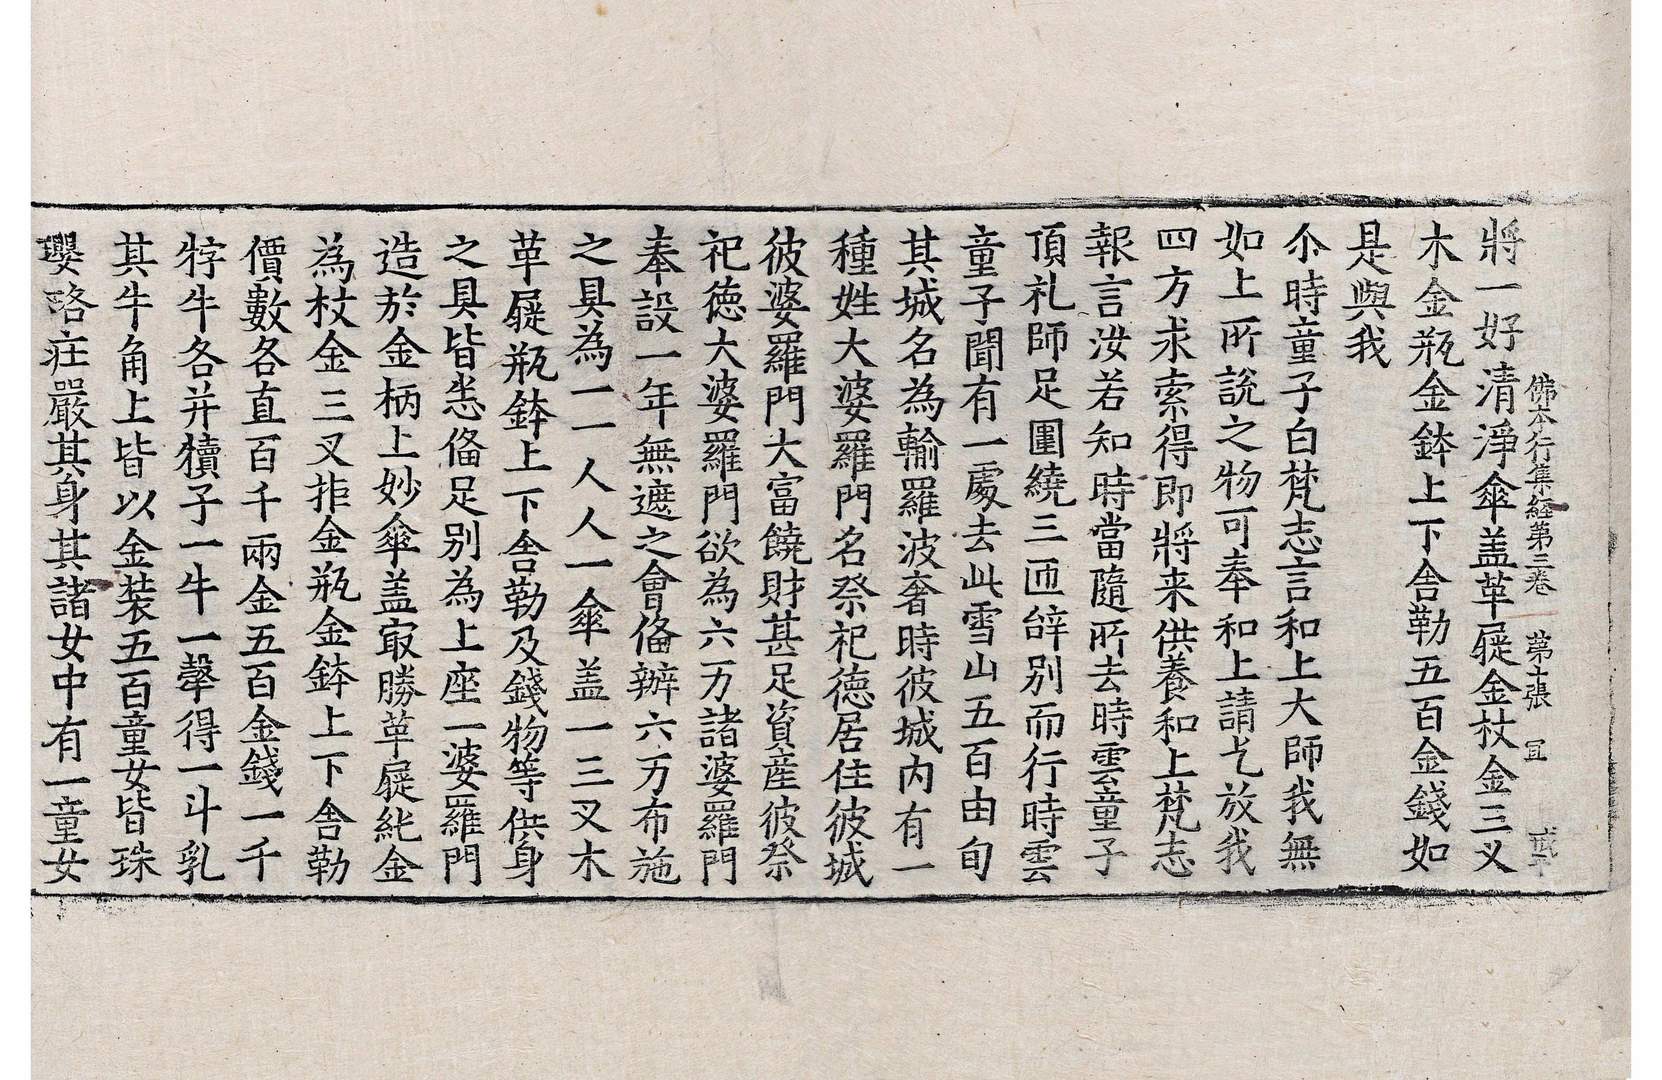 佛本行集經第三卷 第十張 冝
將一好清淨傘盖革屣金杖金三叉
木金瓶金鉢上下舎勒五百金錢如
是與我
尒時童子白梵志言和上大師我無
如上所說之物可奉和上請乞放我
四方求索得即將来供養和上梵志
報言汝若知時當隨所去時雲童子
頂礼師足圍繞三迊辝别而行時雲
童子聞有一處去此雪山五百由旬
其城名為輸羅波奢時彼城内有一
種姓大婆羅門名祭祀德居住彼城
彼婆羅門大富饒財甚足資産彼祭
祀德大婆羅門欲為六万諸婆羅門
奉設一年無遮之會俻辦六万布施
之具為一一人人一傘盖一三叉木
革屣瓶鉢上下舎勒及錢物等供身
之具皆悉俻足别為上座一婆羅門
造扵金柄上妙傘盖冣勝革屣純金
為杖金三叉拒金瓶金鉢上下舎勒
價數各直百千兩金五百金錢一千
牸牛各并犢子一牛一𤛗得一斗乳
其牛角上皆以金装五百童女皆珠
瓔珞庄嚴其身其諸女中有一童女